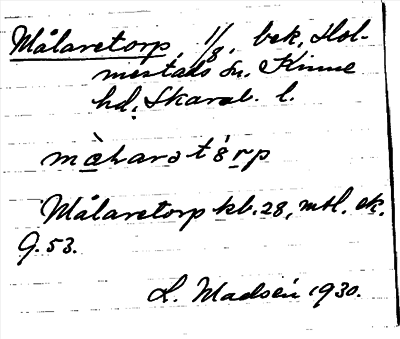 Målaretorp, 1/8, bek, Hol-
mestads sn. Kinne
hd; Skarab. l.
màlarət
Målaretorp kb. 28, mtl. ek.
9.53.
L. Madsén 1930.